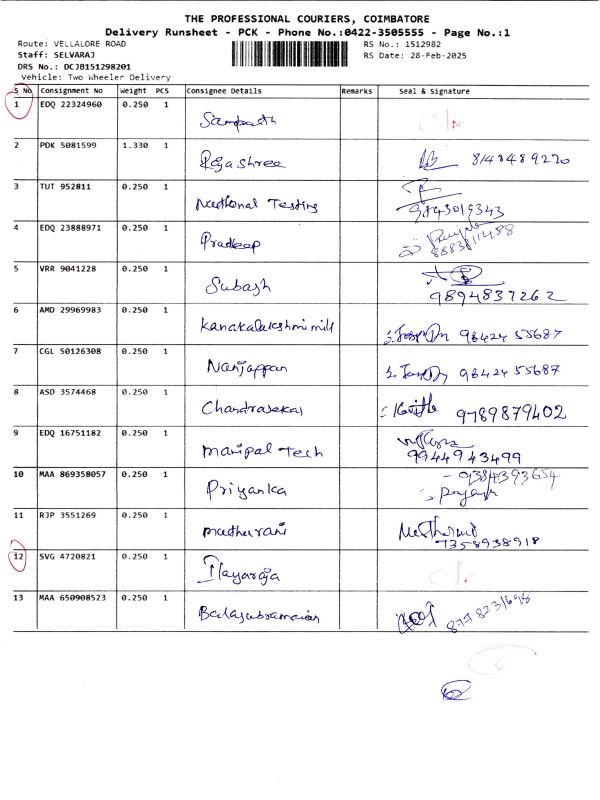 THE PROFESSIONAL COURIERS, COIMBATORE
Delivery Runsheet - PCK - Phone No.:0422-3505555 - Page No.:1
Route: VELLALORE ROAD
RS No.: 1512982
Staff: SELVARAJ
RS Date: 28-Feb-2025
DRS No.: DCJB151298201
Vehicle: Two Wheeler Delivery
S No Consignment No Weight PCS Consignee Details Remarks Seal & Signature
1 EDQ 22324960 0.250 1 Sampath
2 PDK 5081599 1.330 1 Rajashree 8148489270
3 TUT 952811 0.250 1 National Testing 9843019343
4 EDQ 23888971 0.250 1 Pradeep
5 VRR 9041228 0.250 1 Subash 9894837262
6 AMD 29969983 0.250 1 Kanakalakshmi mill 98424 55687
7 CGL 50126308 0.250 1 Nanjappan 98424 55687
8 ASD 3574468 0.250 1 Chandrasekar 9789879402
9 EDQ 16751182 0.250 1 manipal Tech 9944943499
10 MAA 869358057 0.250 1 Priyanka 9384393654
11 RJP 3551269 0.250 1 matharani 7358938918
12 SVG 4720821 0.250 1 Ilayaraja
13 MAA 650908523 0.250 1 Balasubramanian